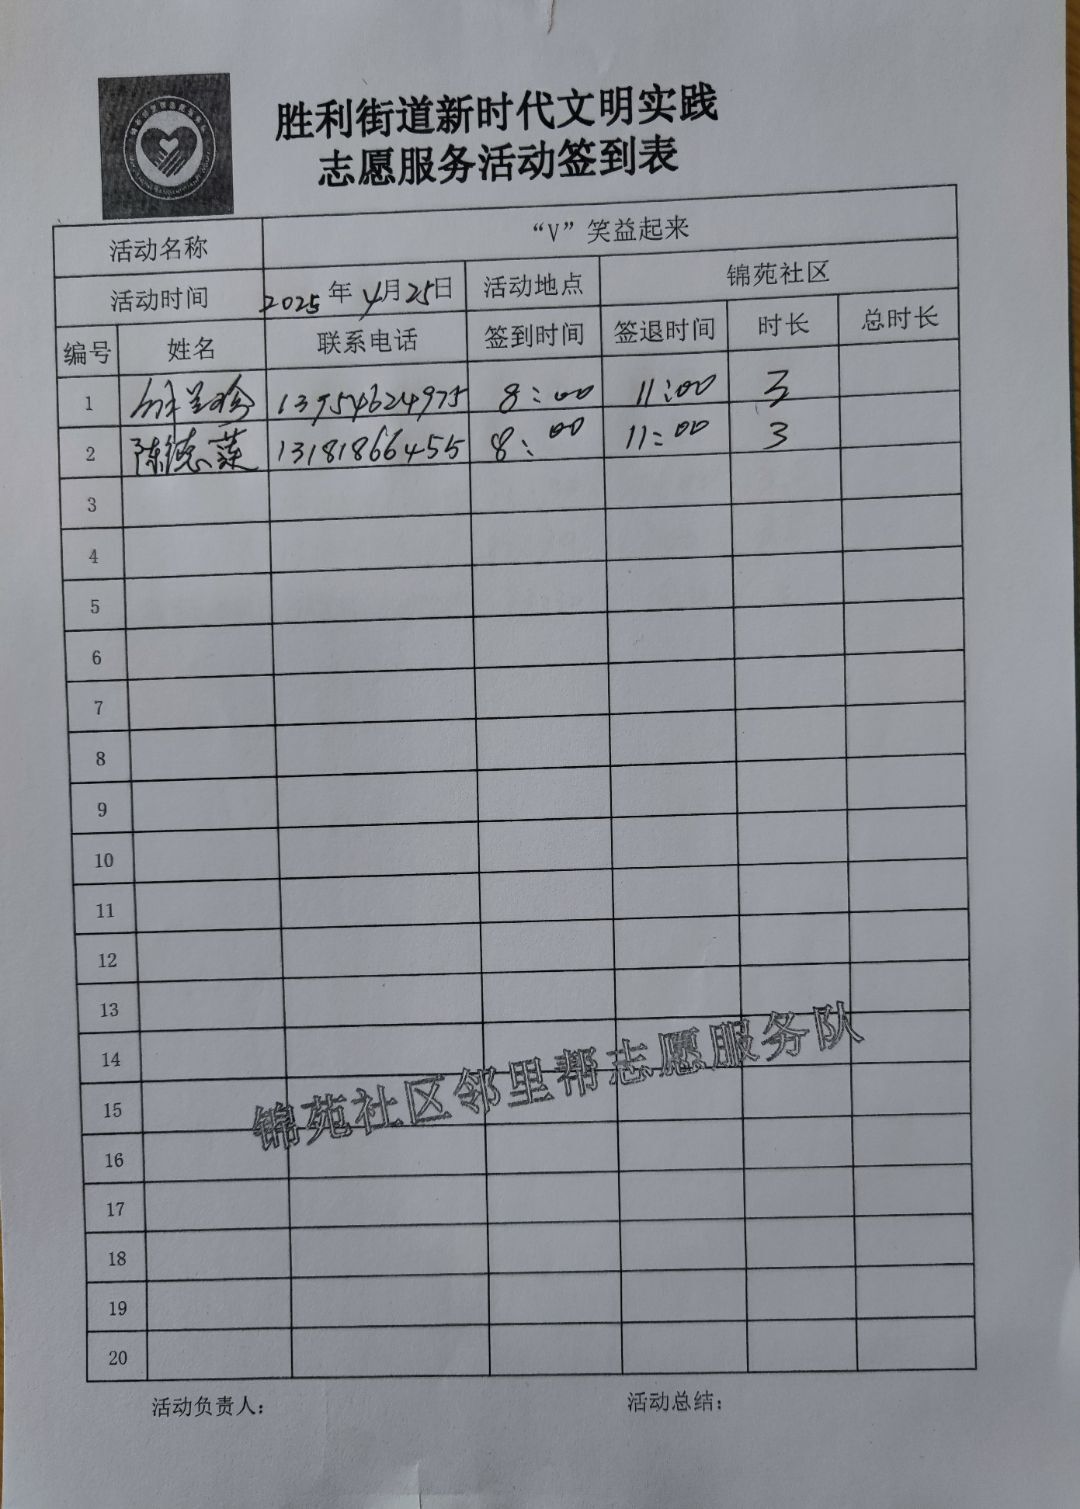 胜利街道新时代文明实践
志愿服务活动签到表
活动名称 “V”笑益起来
活动时间 2025年4月25日 活动地点 锦苑社区
编号 姓名 联系电话 签到时间 签退时间 时长 总时长
1 13954624975 8:00 11:00 3
2 陈德莲 13181866455 8:00 11:00 3
3
4
5
6
7
8
9
10
11
12
13
14
15
16
17
18
19
20
锦苑社区邻里帮志愿服务队
活动负责人: 活动总结: